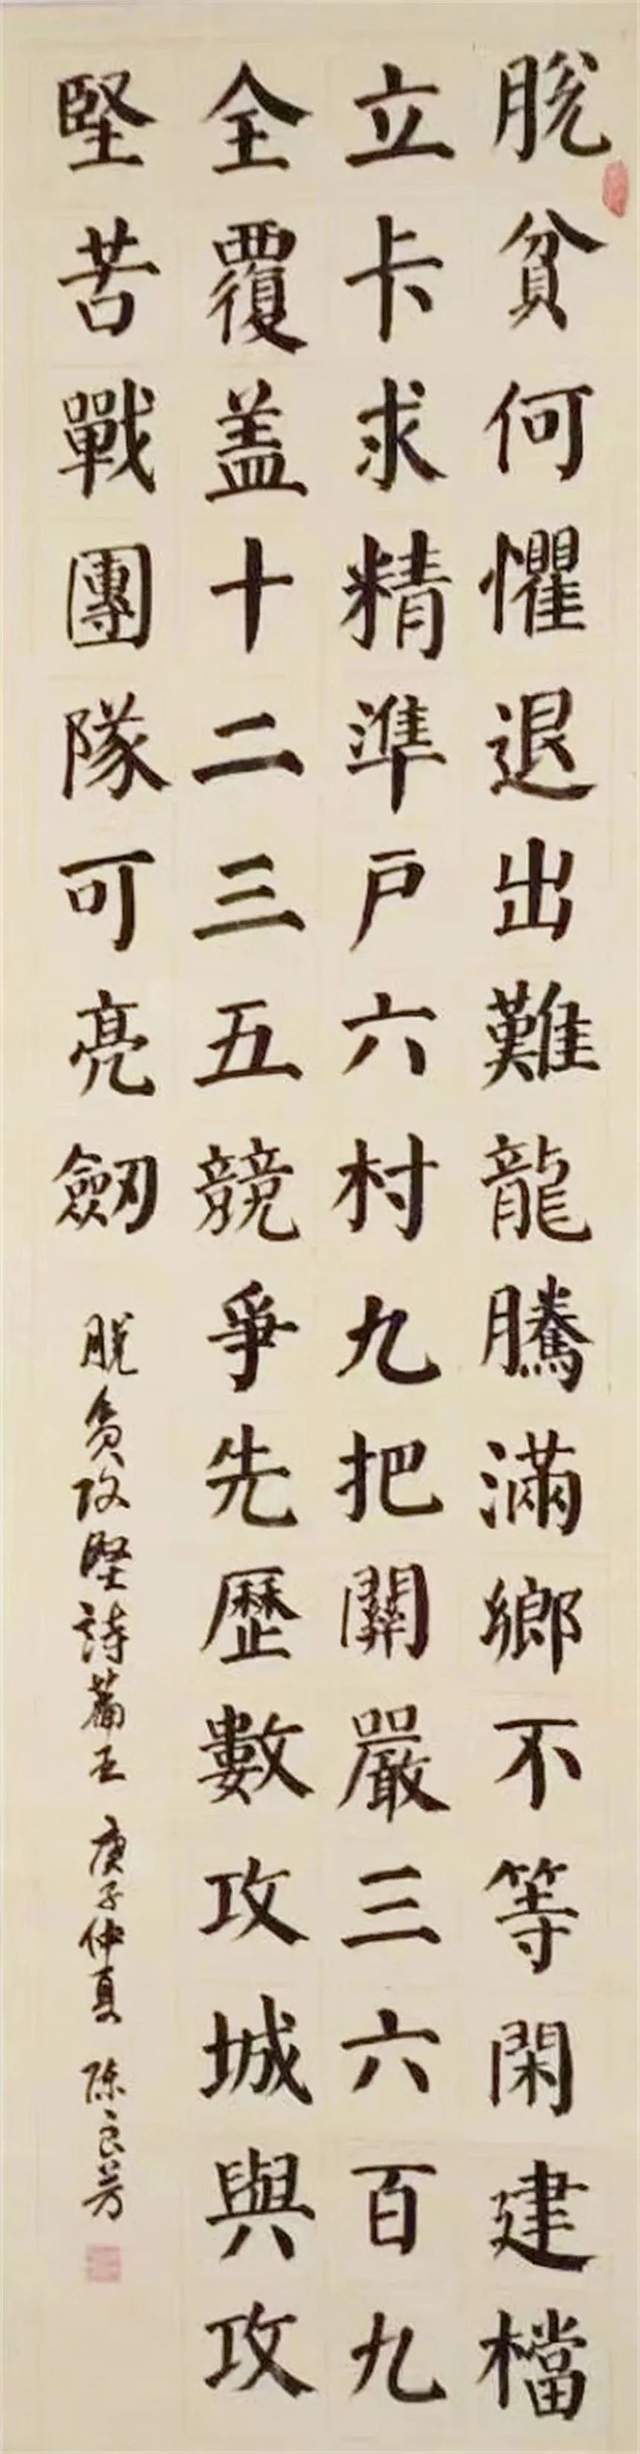 脫貧何懼退出難龍騰滿鄉不等閑建檔
立卡求精準戶六村九把關嚴三六百九
全覆盖十二三五競爭先歷數攻城與攻
堅苦戰團隊可亮劒
脱貧攻堅詩篇五 庚子仲夏 陈良芳